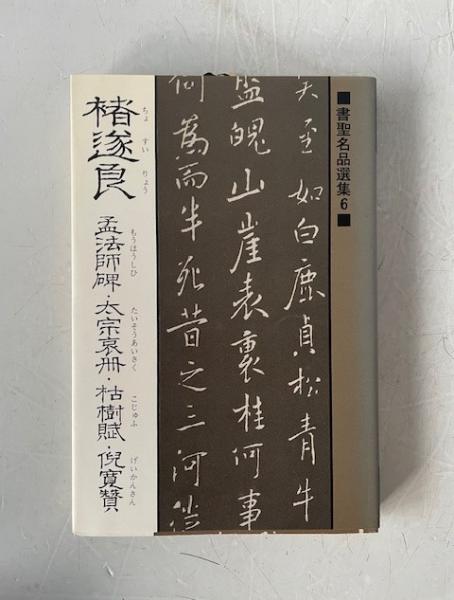 ■書聖名品選集6■
褚遂良
ちょ すい りょう
孟法師碑・太宗哀冊・枯樹賦・倪寛賛
もうほうしひ たいそうあいさく こじゅふ げいかんさん
至如白鹿貞松青牛
盤魄山崖表裏桂何事
而半死昔之三河